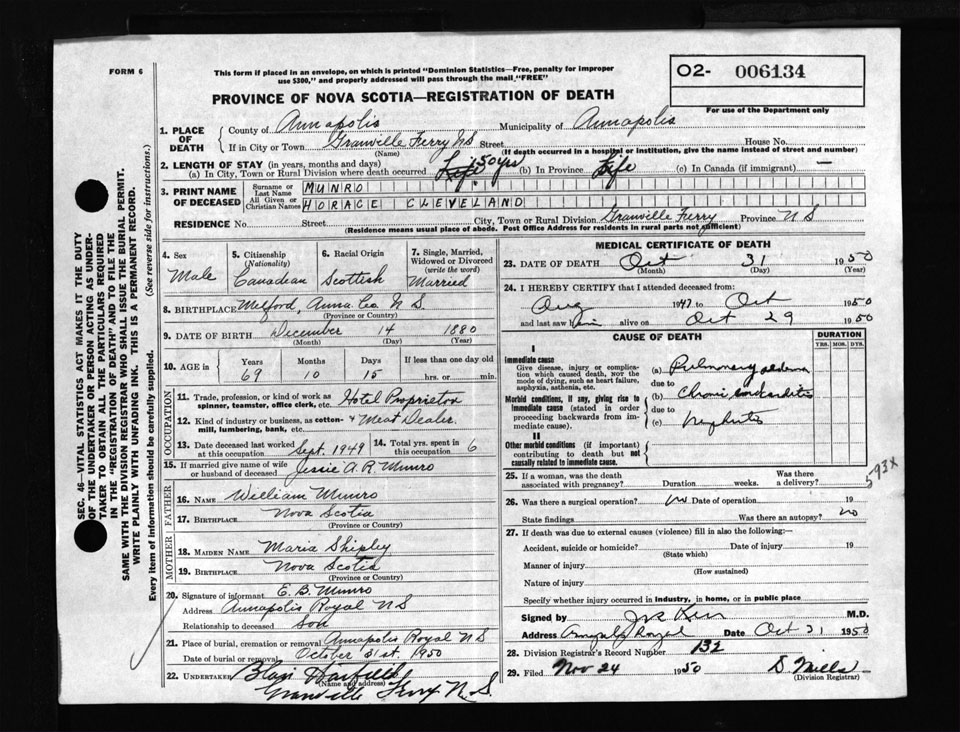 FORM 6
This form if placed in an envelope, on which is printed "Dominion Statistics—Free, penalty for improper
use $300," and properly addressed will pass through the mail "FREE"
O2- 006134
For use of the Department only
PROVINCE OF NOVA SCOTIA—REGISTRATION OF DEATH
1. PLACE OF DEATH
County of Annapolis Municipality of Annapolis
If in City or Town Granville Ferry NS Street House No.
(Name) (If death occurred in a hospital or institution, give the name instead of street and number)
2. LENGTH OF STAY (in years, months and days)
(a) In City, Town or Rural Division where death occurred Life 50 yrs (b) In Province Life (c) In Canada (if immigrant) —
3. PRINT NAME OF DECEASED
Surname or Last Name MUNRO
All Given or Christian Names HORACE CLEVELAND
RESIDENCE No. Street City, Town or Rural Division Granville Ferry Province N S
(Residence means usual place of abode. Post Office Address for residents in rural parts not sufficient)
4. Sex 5. Citizenship (Nationality) 6. Racial Origin 7. Single, Married, Widowed or Divorced (write the word)
Male Canadian Scottish Married
8. BIRTHPLACE Melford, Anna. Co. N S.
(Province or Country)
9. DATE OF BIRTH December 14 1880
(Month) (Day) (Year)
10. AGE in Years Months Days If less than one day old
69 10 15 hrs. or min.
OCCUPATION
11. Trade, profession, or kind of work as
spinner, teamster, office clerk, etc. Hotel Proprietor
12. Kind of industry or business, as cotton-
mill, lumbering, bank, etc. & Meat Dealer.
13. Date deceased last worked at this occupation Sept. 1949 14. Total yrs. spent in this occupation 6
15. If married give name of wife
or husband of deceased Jessie A. R. Munro
FATHER
16. NAME William Munro
17. BIRTHPLACE Nova Scotia
(Province or Country)
MOTHER
18. MAIDEN NAME Maria Shipley
19. BIRTHPLACE Nova Scotia
(Province or Country)
20. Signature of informant E. B. Munro
Address Annapolis Royal N S
Relationship to deceased Son
21. Place of burial, cremation or removal Annapolis Royal N S
Date of burial or removal October 31st. 1950
22. UNDERTAKER
(Name and address)
Granville Ferry N. S
MEDICAL CERTIFICATE OF DEATH
23. DATE OF DEATH Oct 31 1950
(Month) (Day) (Year)
24. I HEREBY CERTIFY that I attended deceased from:
Aug 1947 to Oct 1950
and last saw him alive on Oct 29 1950
CAUSE OF DEATH
DURATION
YRS. MOS. DYS.
I
Immediate cause
Give disease, injury or complication which caused death, NOT the mode of dying, such as heart failure, asphyxia, asthenia, etc.
(a) Pulmonary oedema
due to
Morbid conditions, if any, giving rise to immediate cause (stated in order proceeding backwards from immediate cause).
(b)
due to
(c) Nephritis
II
Other morbid conditions (if important) contributing to death but not causally related to immediate cause.
593X
25. If a woman, was the death associated with pregnancy? Duration weeks. Was there a delivery?
26. Was there a surgical operation? no Date of operation 19
State findings Was there an autopsy? no
27. If death was due to external causes (violence) fill in also the following:—
Accident, suicide or homicide? Date of injury 19
(State which)
Manner of injury
(How sustained)
Nature of injury
Specify whether injury occurred in industry, in home, or in public place
Signed by M.D.
Address Annapolis Royal Date Oct 31 1950
28. Division Registrar's Record Number 132
29. Filed Nov 24 1950 D. Mills
(Division Registrar)
SEC. 46 VITAL STATISTICS ACT MAKES IT THE DUTY
OF THE UNDERTAKER OR PERSON ACTING AS UNDER-
TAKER TO OBTAIN ALL THE PARTICULARS REQUIRED
IN THE "REGISTRATION OF DEATH" AND TO FILE THE
SAME WITH THE DIVISION REGISTRAR WHO SHALL ISSUE THE BURIAL PERMIT.
WRITE PLAINLY WITH UNFADING INK. THIS IS A PERMANENT RECORD.
Every item of information should be carefully supplied. (See reverse side for instructions.)